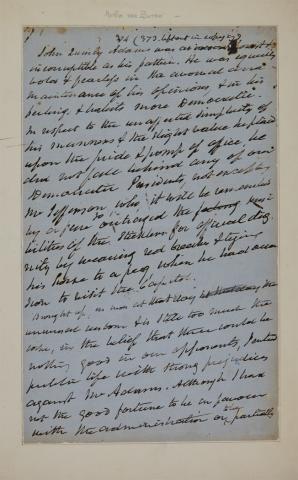 Martin Van Buren
34 (373 left out in copying)
John Quincy Adams was as honest &
incorruptible as his father. He was equally
bold & fearless in the avowal and
maintenance of his opinions, & in his
feelings & habits more Democratic.
In respect to the unaffected simplicity of
his manners & the slight value he placed
upon the pride & pomp of office, he
did not fall behind any of our
Democratic Presidents, not excepting
Mr Jefferson who it will be remembered
outraged the sensi-
bilities of the sticklers for official dig-
nity by wearing red breeches & tying
his horse to a peg when he had occa
sion to visit the Capitol.
Brought up, as was at that day the
universal custom & is still too much the
case, in the belief that there could be
nothing good in our opponents, I entered
public life with strong prejudices
against Mr Adams. Although I had
not the good fortune to be in favour
with the administration or partially